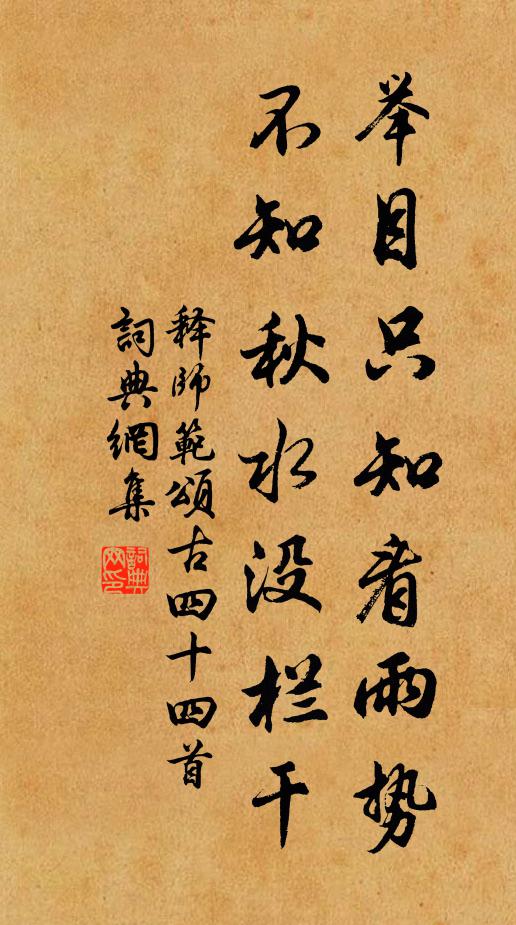 举目只知看雨势
不知秋水没栏干
释師範頌古四十四首
詞典網集
詞典網印